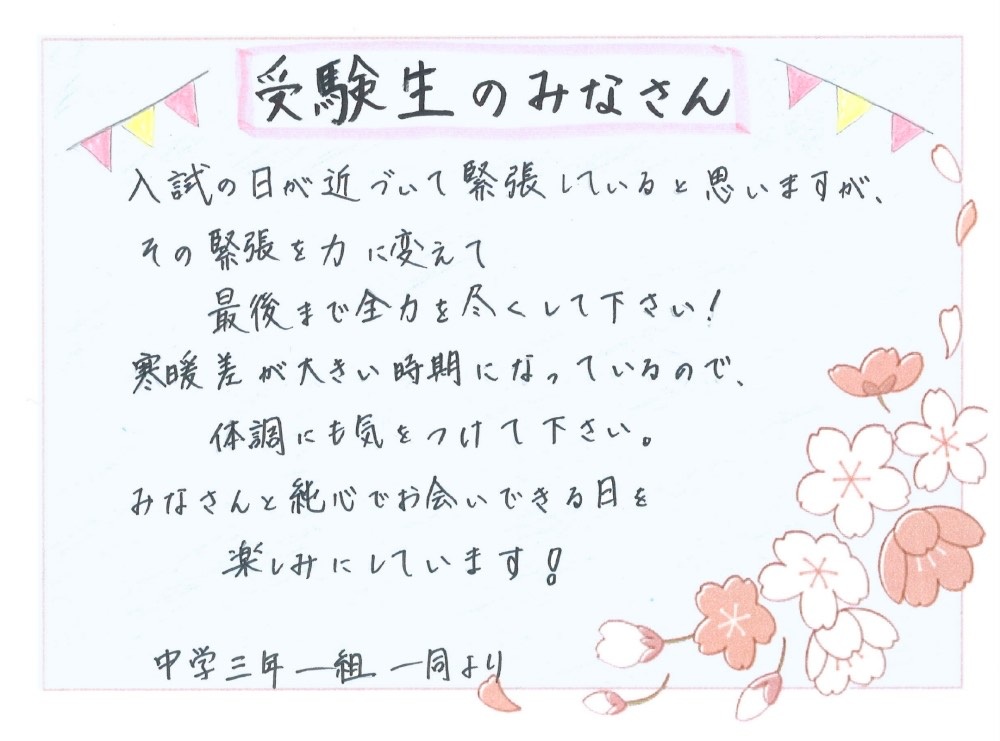 受験生のみなさん
入試の日が近づいて緊張していると思いますが、
その緊張を力に変えて
最後まで全力を尽くして下さい!
寒暖差が大きい時期になっているので、
体調にも気をつけて下さい。
みなさんと純心でお会いできる日を
楽しみにしています!
中学三年一組 一同より